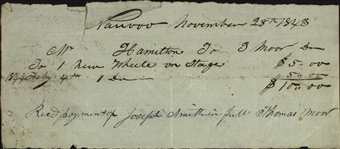 Nauvoo November 28th 1843
Mr Hamilton To J Moor Dr
To 1 new Wheele on Stage $5.00
July 4th 1 Do 5.00
$10.00
Recd payment of Joseph Smith in full Thomas Moor